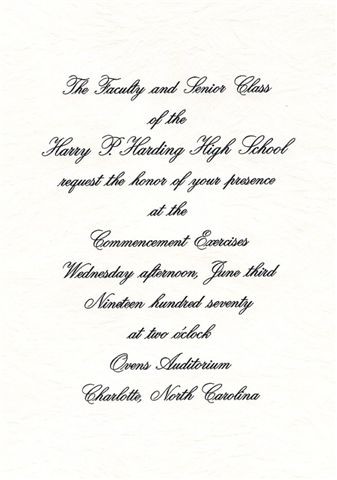 The Faculty and Senior Class
of the
Harry P. Harding High School
request the honor of your presence
at the
Commencement Exercises
Wednesday afternoon, June third
Nineteen hundred seventy
at two o'clock
Ovens Auditorium
Charlotte, North Carolina